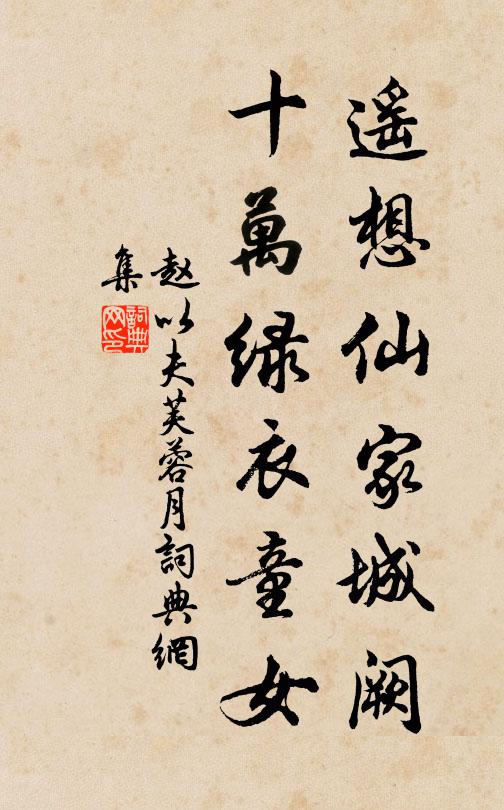 遥想仙家城阙
十萬绿衣童女
赵以夫芙蓉月詞典網
集
詞典
网印